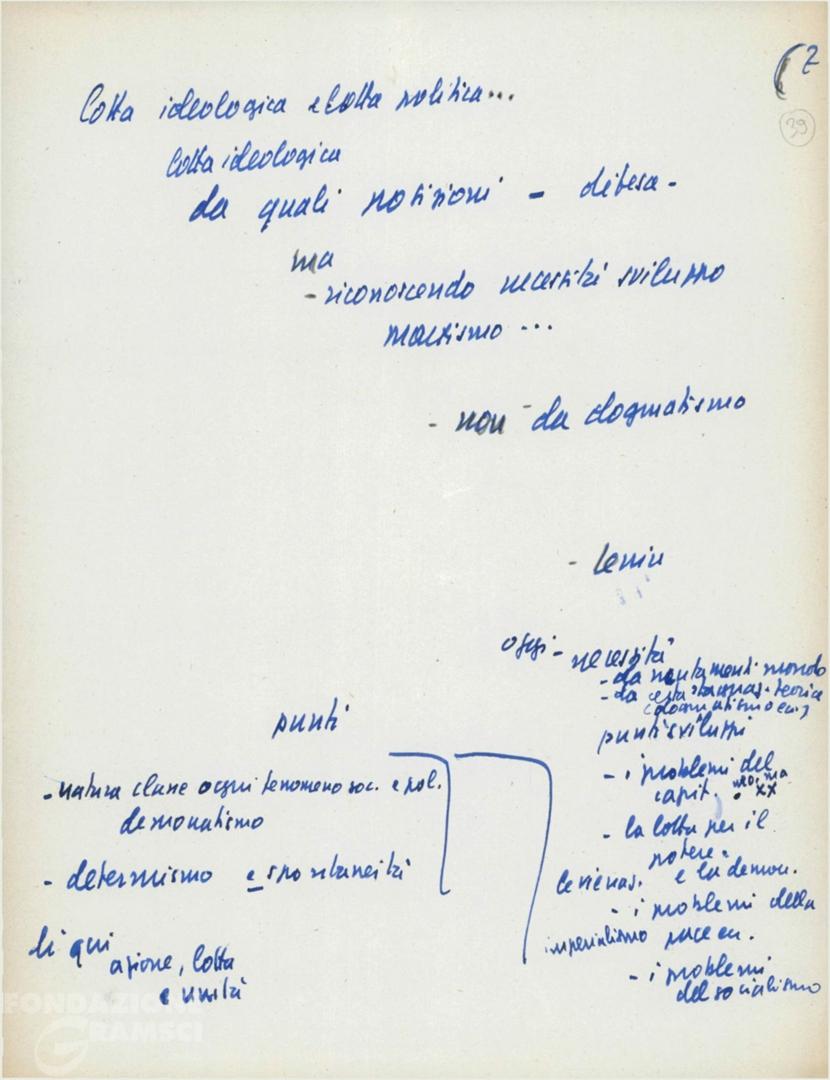 (7
39
Lotta ideologica e lotta politica...
lotta ideologica
da quali posizioni - difesa -
ma
- riconoscendo necessità sviluppo
marxismo ...
- non da dogmatismo
- Lenin
oggi - necessità
- da mutamenti mondo
- da stagnaz. teorica
(dogmatismo ecc.)
punti sviluppi
- i problemi del
capit. XX
- la lotta per il
potere
e la democr.
- i problemi della
imperialismo pace ecc.
- i problemi
del socialismo
punti
- natura classe ogni fenomeno soc. e pol.
democratismo
- determismo e spontaneità
di qui
azione, lotta
e unità
FONDAZIONE
GRAMSCI